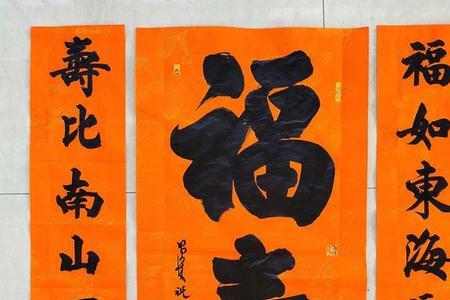 福如東海
福
壽比南山